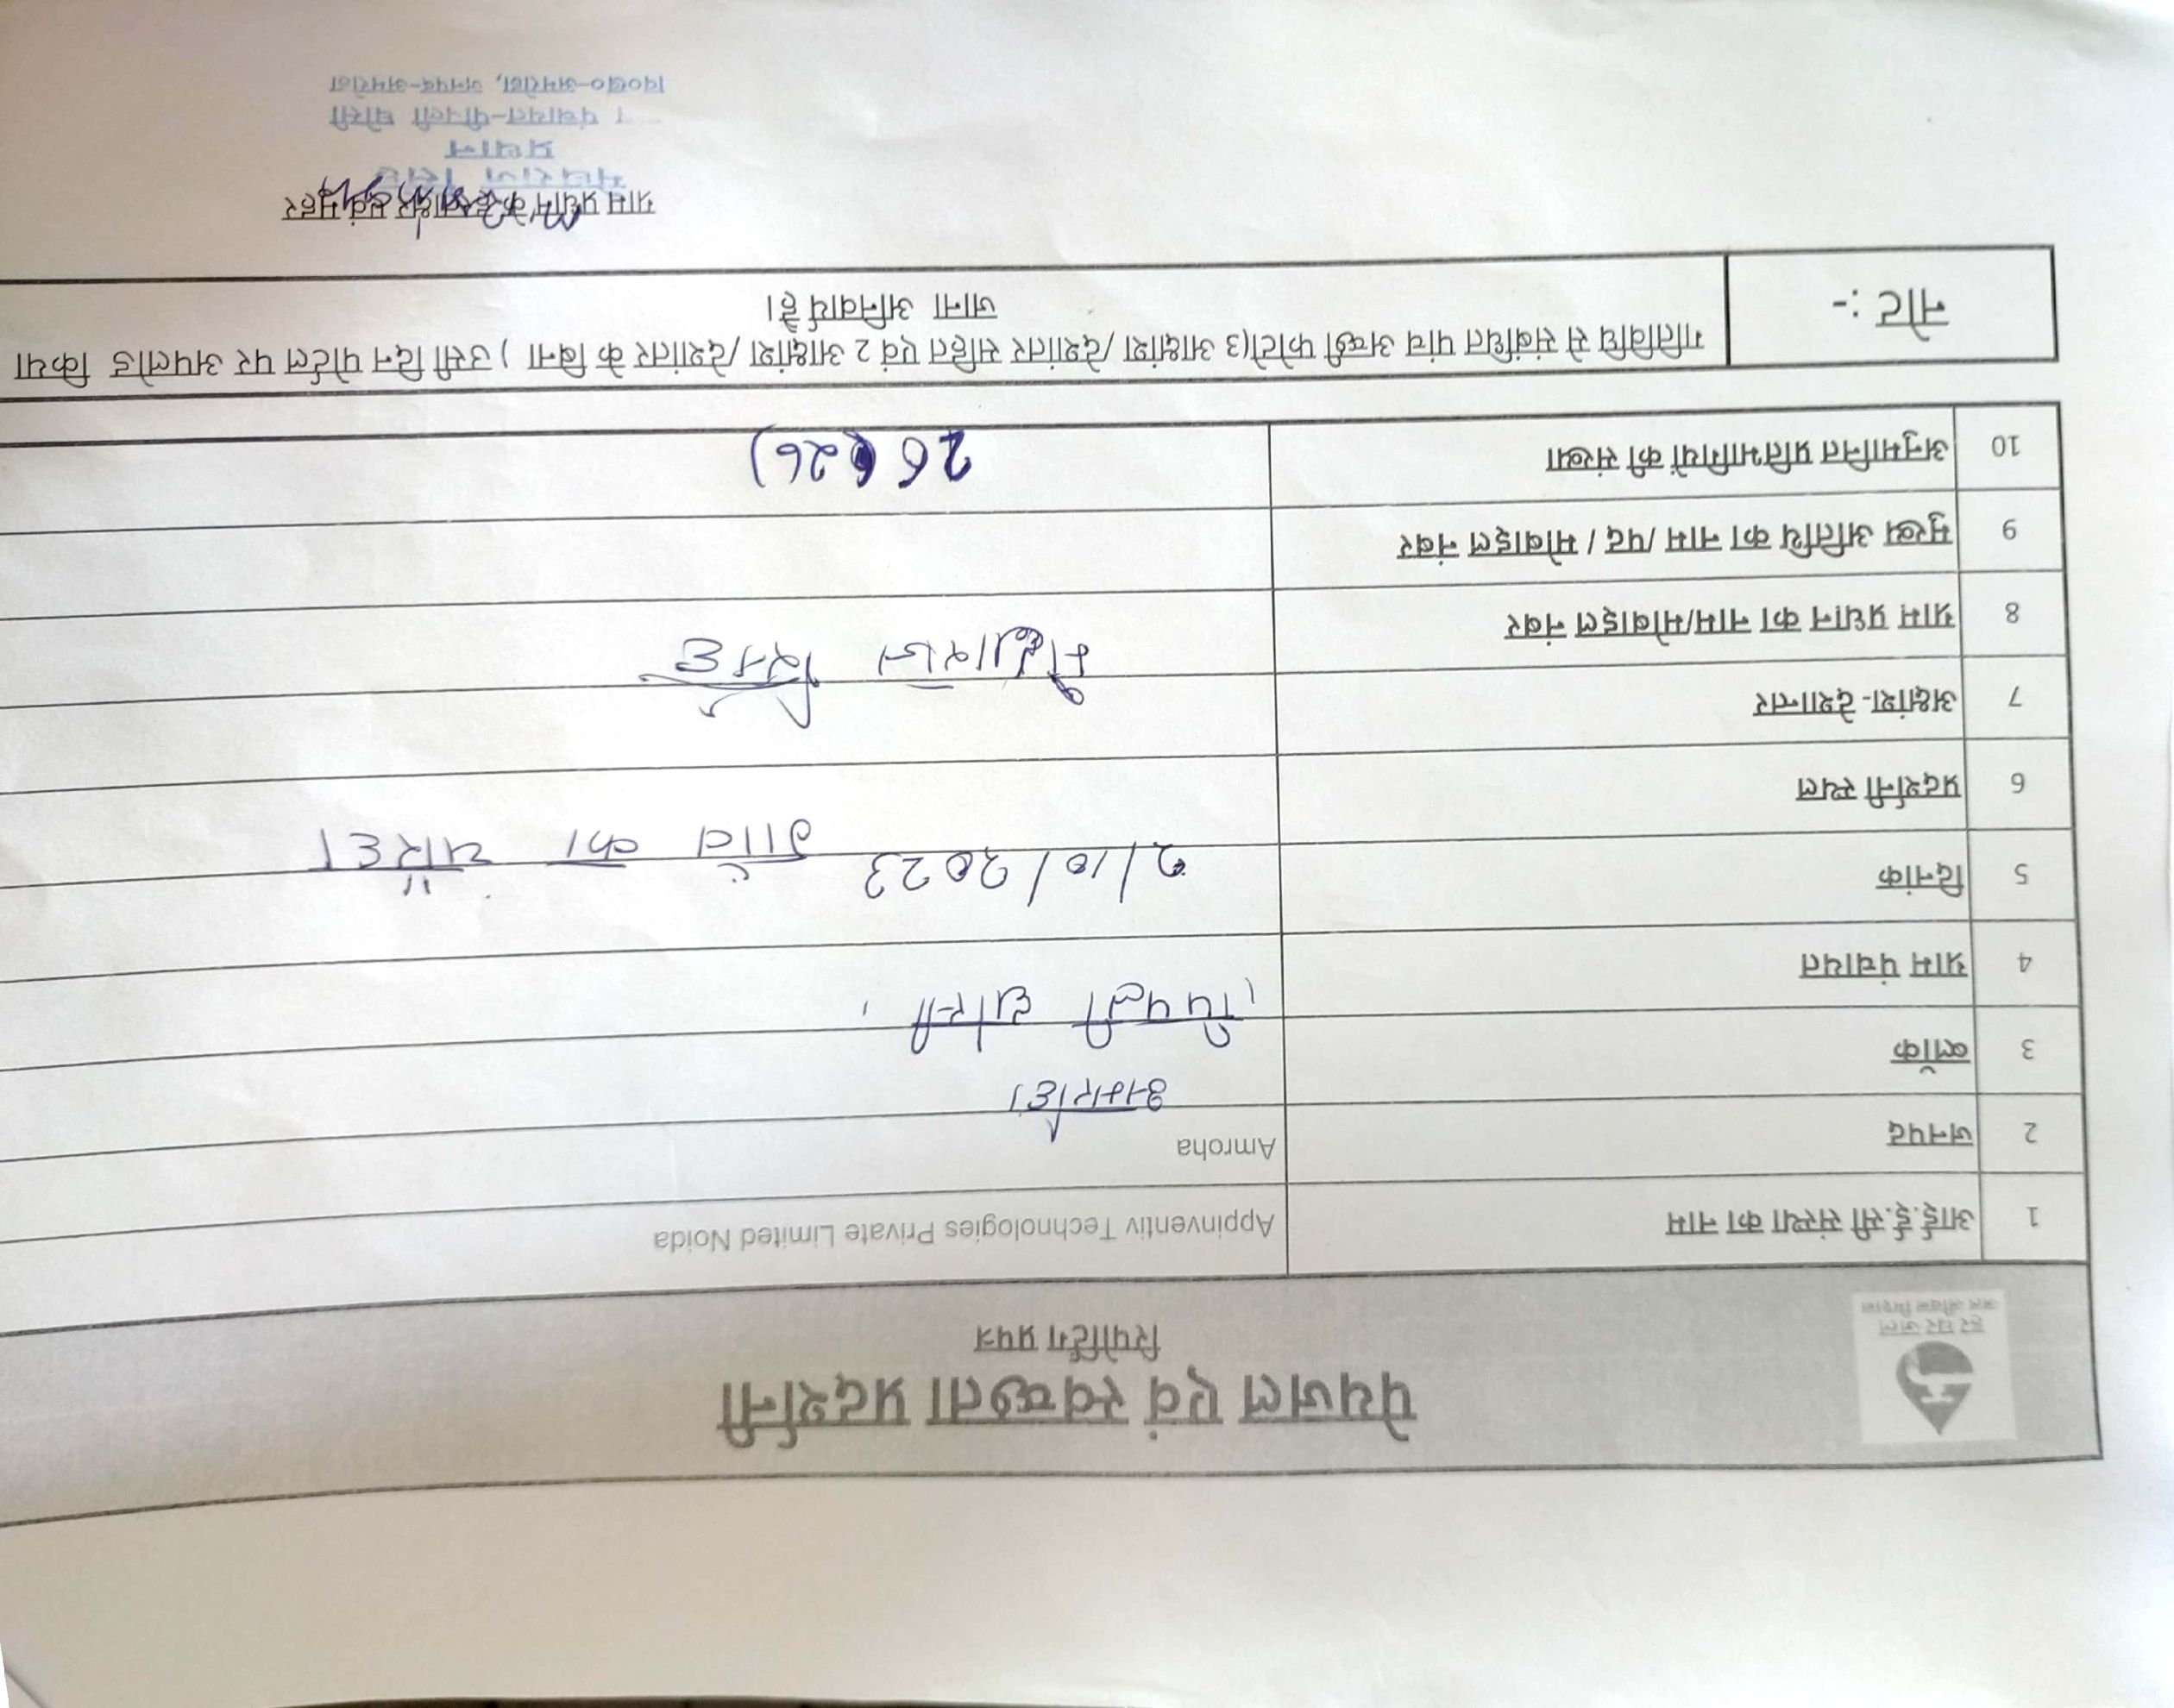 हर घर जल
जल जीवन मिशन
पेयजल एवं स्वच्छता प्रदर्शनी
रिपोर्टिंग प्रपत्र
1 आई.ई.सी संस्था का नाम Appinventiv Technologies Private Limited Noida
2 जनपद Amroha
3 ब्लॉक अमरोहा
4 ग्राम पंचायत पिपली घोसी
5 दिनांक 2/10/2023
6 प्रदर्शनी स्थल गांव का चौराहा
7 अक्षांश-देशान्तर
8 ग्राम प्रधान का नाम/मोबाइल नंबर सिंह
9 मुख्य अतिथि का नाम /पद / मोबाइल नंबर
10 अनुमानित प्रतिभागियों की संख्या 26 (26)
नोट :- गतिविधि से संबंधित पांच अच्छी फोटो(3 आक्षांश /देशांतर सहित एवं 2 आक्षांश /देशांतर के बिना ) उसी दिन पोर्टल पर अपलोड किया
जाना अनिवार्य है।
ग्राम प्रधान के हस्ताक्षर एवं मुहर
प्रधान
पंचायत-पीपली घोसी
वि०ख०-अमरोहा, जनपद-अमरोहा